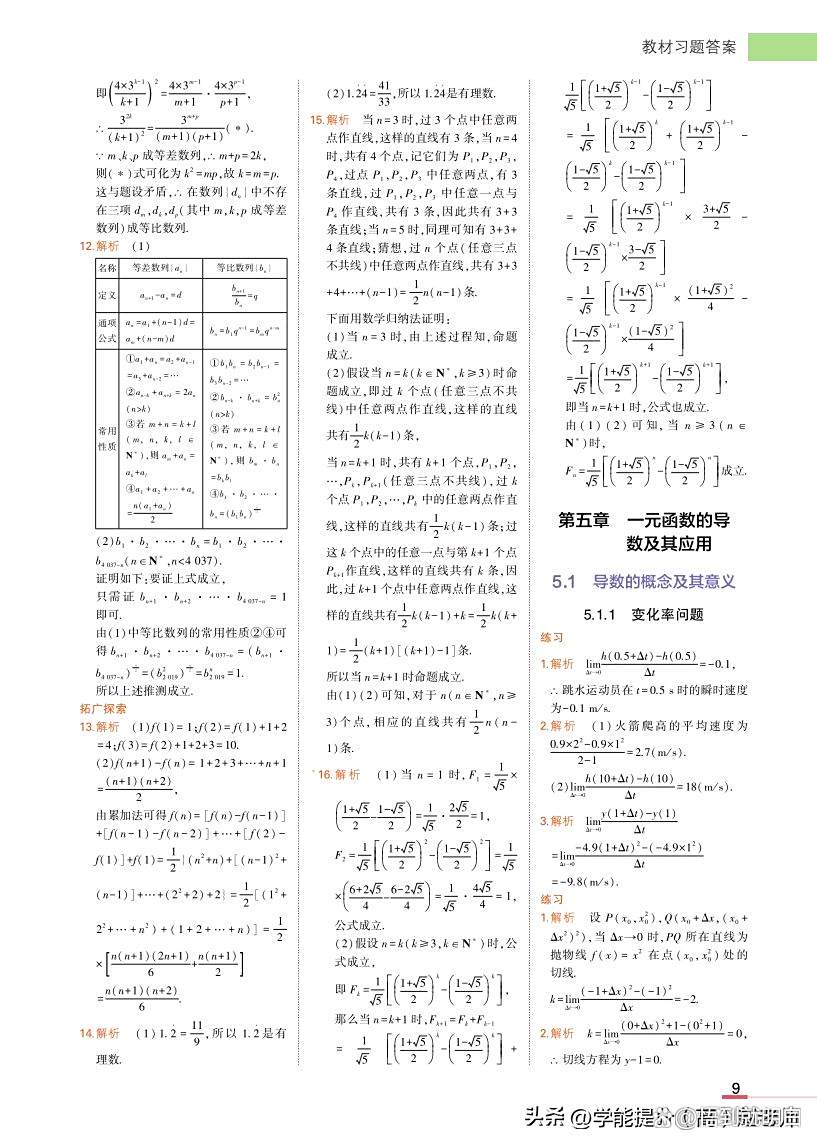 教材习题答案
即(4×3^{k-1}/(k+1))^2=4×3^{m-1}/(m+1)·4×3^{p-1}/(p+1),
∴3^{2k}/(k+1)^2=3^{m+p}/((m+1)(p+1))(*).
∵m、k、p成等差数列,∴m+p=2k,
则(*)式可化为k^2=mp,故k=m=p.
这与题设矛盾,∴在数列{d_n}中不存
在三项d_m,d_k,d_p(其中m,k,p成等差
数列)成等比数列.
12.解析 (1)
名称 等差数列{a_n} 等比数列{b_n}
定义 a_{n+1}-a_n=d b_{n+1}/b_n=q
通项公式 a_n=a_1+(n-1)d=a_m+(n-m)d b_n=b_1q^{n-1}=b_mq^{n-m}
常用性质
①a_1+a_n=a_2+a_{n-1}
=a_3+a_{n-2}=…
②a_{n-k}+a_{n+k}=2a_n
(n>k)
③若m+n=k+l
(m,n,k,l∈
N^*),则a_m+a_n=
a_k+a_l
④a_1+a_2+…+a_n
=n(a_1+a_n)/2
①b_1b_n=b_2b_{n-1}=
b_3b_{n-2}=…
②b_{n-k}·b_{n+k}=b_n^2
(n>k)
③若m+n=k+l
(m,n,k,l∈
N^*),则b_m·b_n
=b_kb_l
④b_1·b_2·…·
b_n=(b_1b_n)^{n/2}
(2)b_1·b_2·…·b_n=b_1·b_2·…·
b_{4 037-n}(n∈N^*,n<4 037).
证明如下:要证上式成立,
只需证b_{n+1}·b_{n+2}·…·b_{4 037-n}=1
即可.
由(1)中等比数列的常用性质②④可
得b_{n+1}·b_{n+2}·…·b_{4 037-n}=(b_{n+1}·
所以上述推测成立.
拓广探索
13.解析 (1)f(1)=1;f(2)=f(1)+1+2
=4;f(3)=f(2)+1+2+3=10.
(2)f(n+1)-f(n)=1+2+3+…+n+1
=(n+1)(n+2)/2,
由累加法可得f(n)=[f(n)-f(n-1)]
+[f(n-1)-f(n-2)]+…+[f(2)-
f(1)]+f(1)=1/2{(n^2+n)+[(n-1)^2+
(n-1)]+…+(2^2+2)+2}=1/2[(1^2+
2^2+…+n^2)+(1+2+…+n)]=1/2
×[n(n+1)(2n+1)/6+n(n+1)/2]
=n(n+1)(n+2)/6.
14.解析 (1)1.2̇=11/9,所以1.2̇是有
理数.
(2)1.2̇4̇=41/33,所以1.2̇4̇是有理数.
15.解析 当n=3时,过3个点中任意两
点作直线,这样的直线有3条,当n=4
时,共有4个点,记它们为P_1,P_2,P_3,
P_4,过点P_1,P_2,P_3中任意两点,有3
条直线,过P_1,P_2,P_3中任意一点与
P_4作直线,共有3条,因此共有3+3
条直线;当n=5时,同理可知有3+3+
4条直线;猜想,过n个点(任意三点
不共线)中任意两点作直线,共有3+3
+4+…+(n-1)=1/2n(n-1)条.
下面用数学归纳法证明:
(1)当n=3时,由上述过程知,命题
成立.
(2)假设当n=k(k∈N^*,k≥3)时命
题成立,即过k个点(任意三点不共
线)中任意两点作直线,这样的直线
共有1/2k(k-1)条,
当n=k+1时,共有k+1个点,P_1,P_2,
…,P_k,P_{k+1}(任意三点不共线),过k
个点P_1,P_2,…,P_k中的任意两点作直
线,这样的直线共有1/2k(k-1)条;过
这k个点中的任意一点与第k+1个点
P_{k+1}作直线,这样的直线共有k条,因
此,过k+1个点中任意两点作直线,这
样的直线共有1/2k(k-1)+k=1/2k(k+
1)=1/2(k+1)[(k+1)-1]条.
所以当n=k+1时命题成立.
由(1)(2)可知,对于n(n∈N^*,n≥
3)个点,相应的直线共有1/2n(n-
1)条.
*16.解析 (1)当n=1时,F_1=1/√5×
((1+√5)/2-(1-√5)/2)=1/√5·2√5/2=1,
F_2=1/√5[((1+√5)/2)^2-((1-√5)/2)^2]=1/√5
×((6+2√5)/4-(6-2√5)/4)=1/√5·4√5/4=1,
公式成立.
(2)假设n=k(k≥3,k∈N^*)时,公
式成立,
即F_k=1/√5[((1+√5)/2)^k-((1-√5)/2)^k],
那么当n=k+1时,F_{k+1}=F_k+F_{k-1}
=1/√5[((1+√5)/2)^k-((1-√5)/2)^k]+
1/√5[((1+√5)/2)^{k-1}-((1-√5)/2)^{k-1}]
=1/√5[((1+√5)/2)^k+((1+√5)/2)^{k-1}-
((1-√5)/2)^k-((1-√5)/2)^{k-1}]
=1/√5[((1+√5)/2)^{k-1}×(3+√5)/2-
((1-√5)/2)^{k-1}×(3-√5)/2]
=1/√5[((1+√5)/2)^{k-1}×(1+√5)^2/4-
((1-√5)/2)^{k-1}×(1-√5)^2/4]
=1/√5[((1+√5)/2)^{k+1}-((1-√5)/2)^{k+1}],
即当n=k+1时,公式也成立.
由(1)(2)可知,当n≥3(n∈
N^*)时,
F_n=1/√5[((1+√5)/2)^n-((1-√5)/2)^n]成立.
第五章 一元函数的导
数及其应用
5.1 导数的概念及其意义
5.1.1 变化率问题
练习
1.解析 lim_{Δt→0}(h(0.5+Δt)-h(0.5))/Δt=-0.1,
∴跳水运动员在t=0.5 s时的瞬时速度
为-0.1 m/s.
2.解析 (1)火箭爬高的平均速度为
(0.9×2^2-0.9×1^2)/(2-1)=2.7(m/s).
(2)lim_{Δt→0}(h(10+Δt)-h(10))/Δt=18(m/s).
3.解析 lim_{Δt→0}(y(1+Δt)-y(1))/Δt
=lim_{Δt→0}(-4.9(1+Δt)^2-(-4.9×1^2))/Δt
=-9.8(m/s).
练习
1.解析 设P(x_0,x_0^2),Q(x_0+Δx,(x_0+
Δx^2)^2),当Δx→0时,PQ所在直线为
抛物线f(x)=x^2在点(x_0,x_0^2)处的
切线.
k=lim_{Δx→0}((-1+Δx)^2-(-1)^2)/Δx=-2.
2.解析 k=lim_{Δx→0}((0+Δx)^2+1-(0^2+1))/Δx=0,
∴切线方程为y-1=0.
9
头条@学能提分